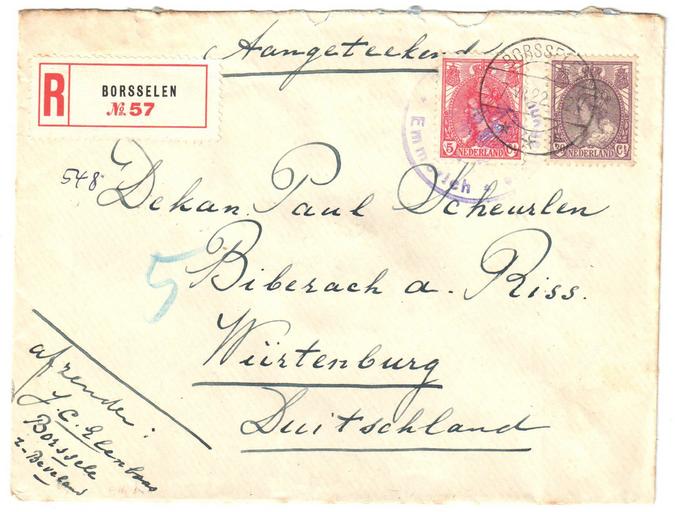 Aangeteekend
R BORSSELEN
№ 57
BORSSELE
22
5 NEDERLAND
NEDERLAND Ct
Emmerich
548
Dekan Paul Scheurlen
5
Biberach a. Riss.
Würtenburg
Duitschland
afzender:
J. C. Elenbaas
Borssele
Z-Beveland